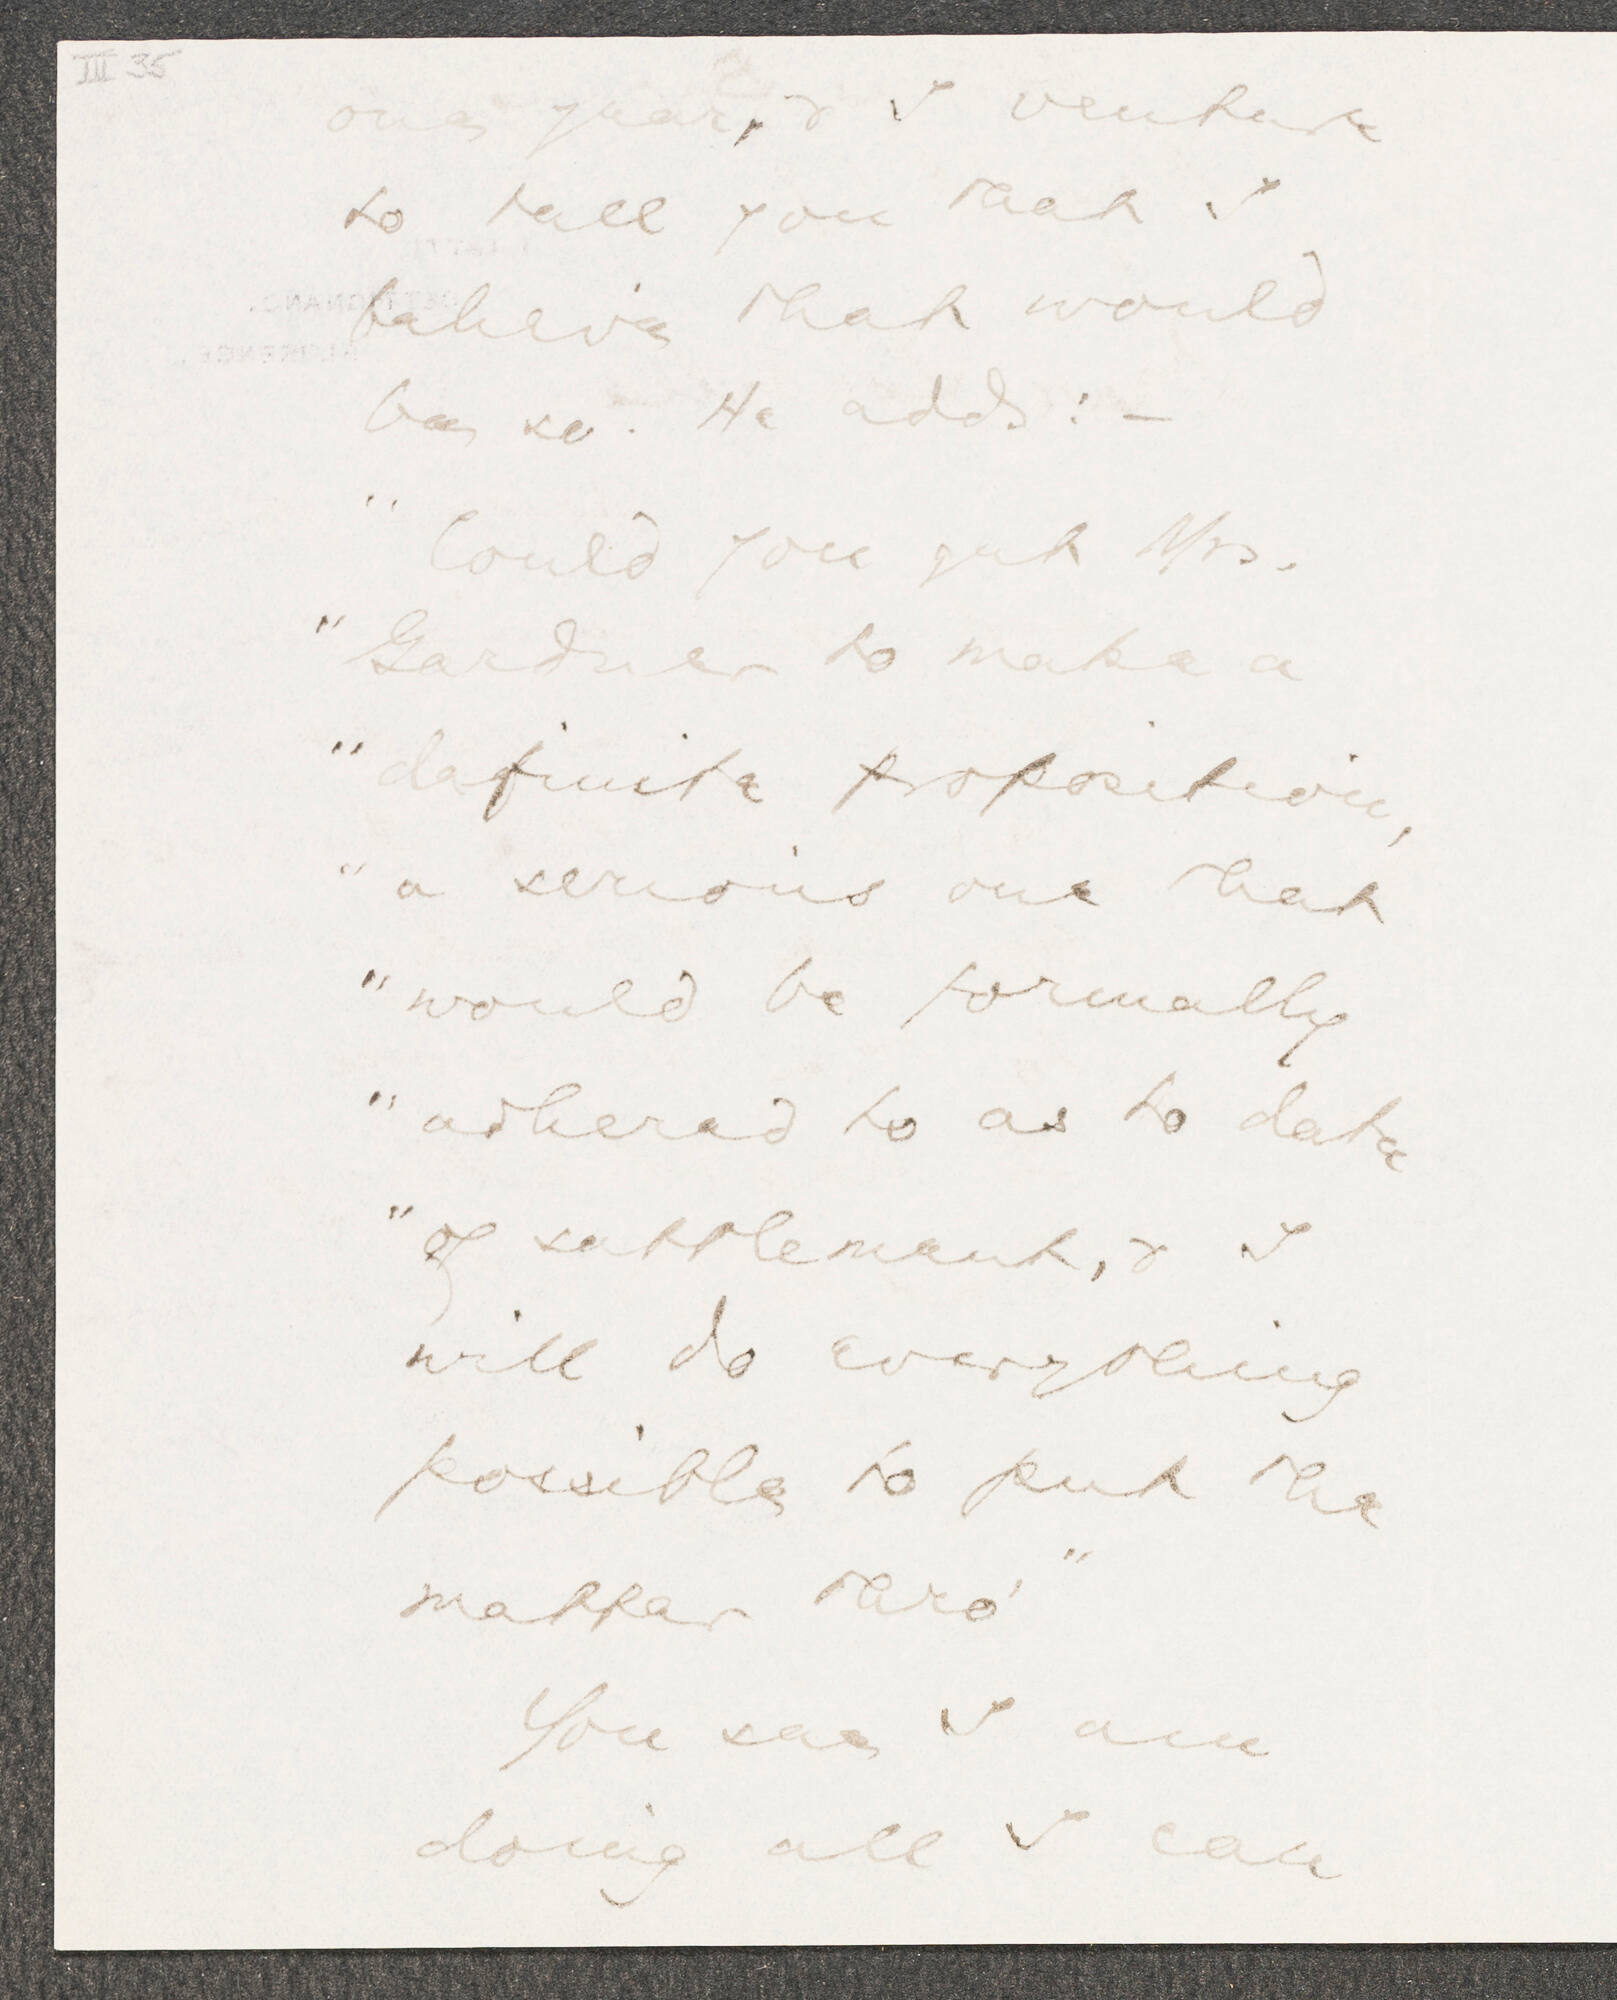 III 35
one year, & I venture
to tell you that I
believe that would
be so. He adds : —
" Could you get Mrs.
" Gardner to make a
" definite proposition,
" a serious one that
" would be formally
" adhered to as to date
" of settlement, & I
will do everything
possible to put the
matter thro' "
You see I am
doing all I can